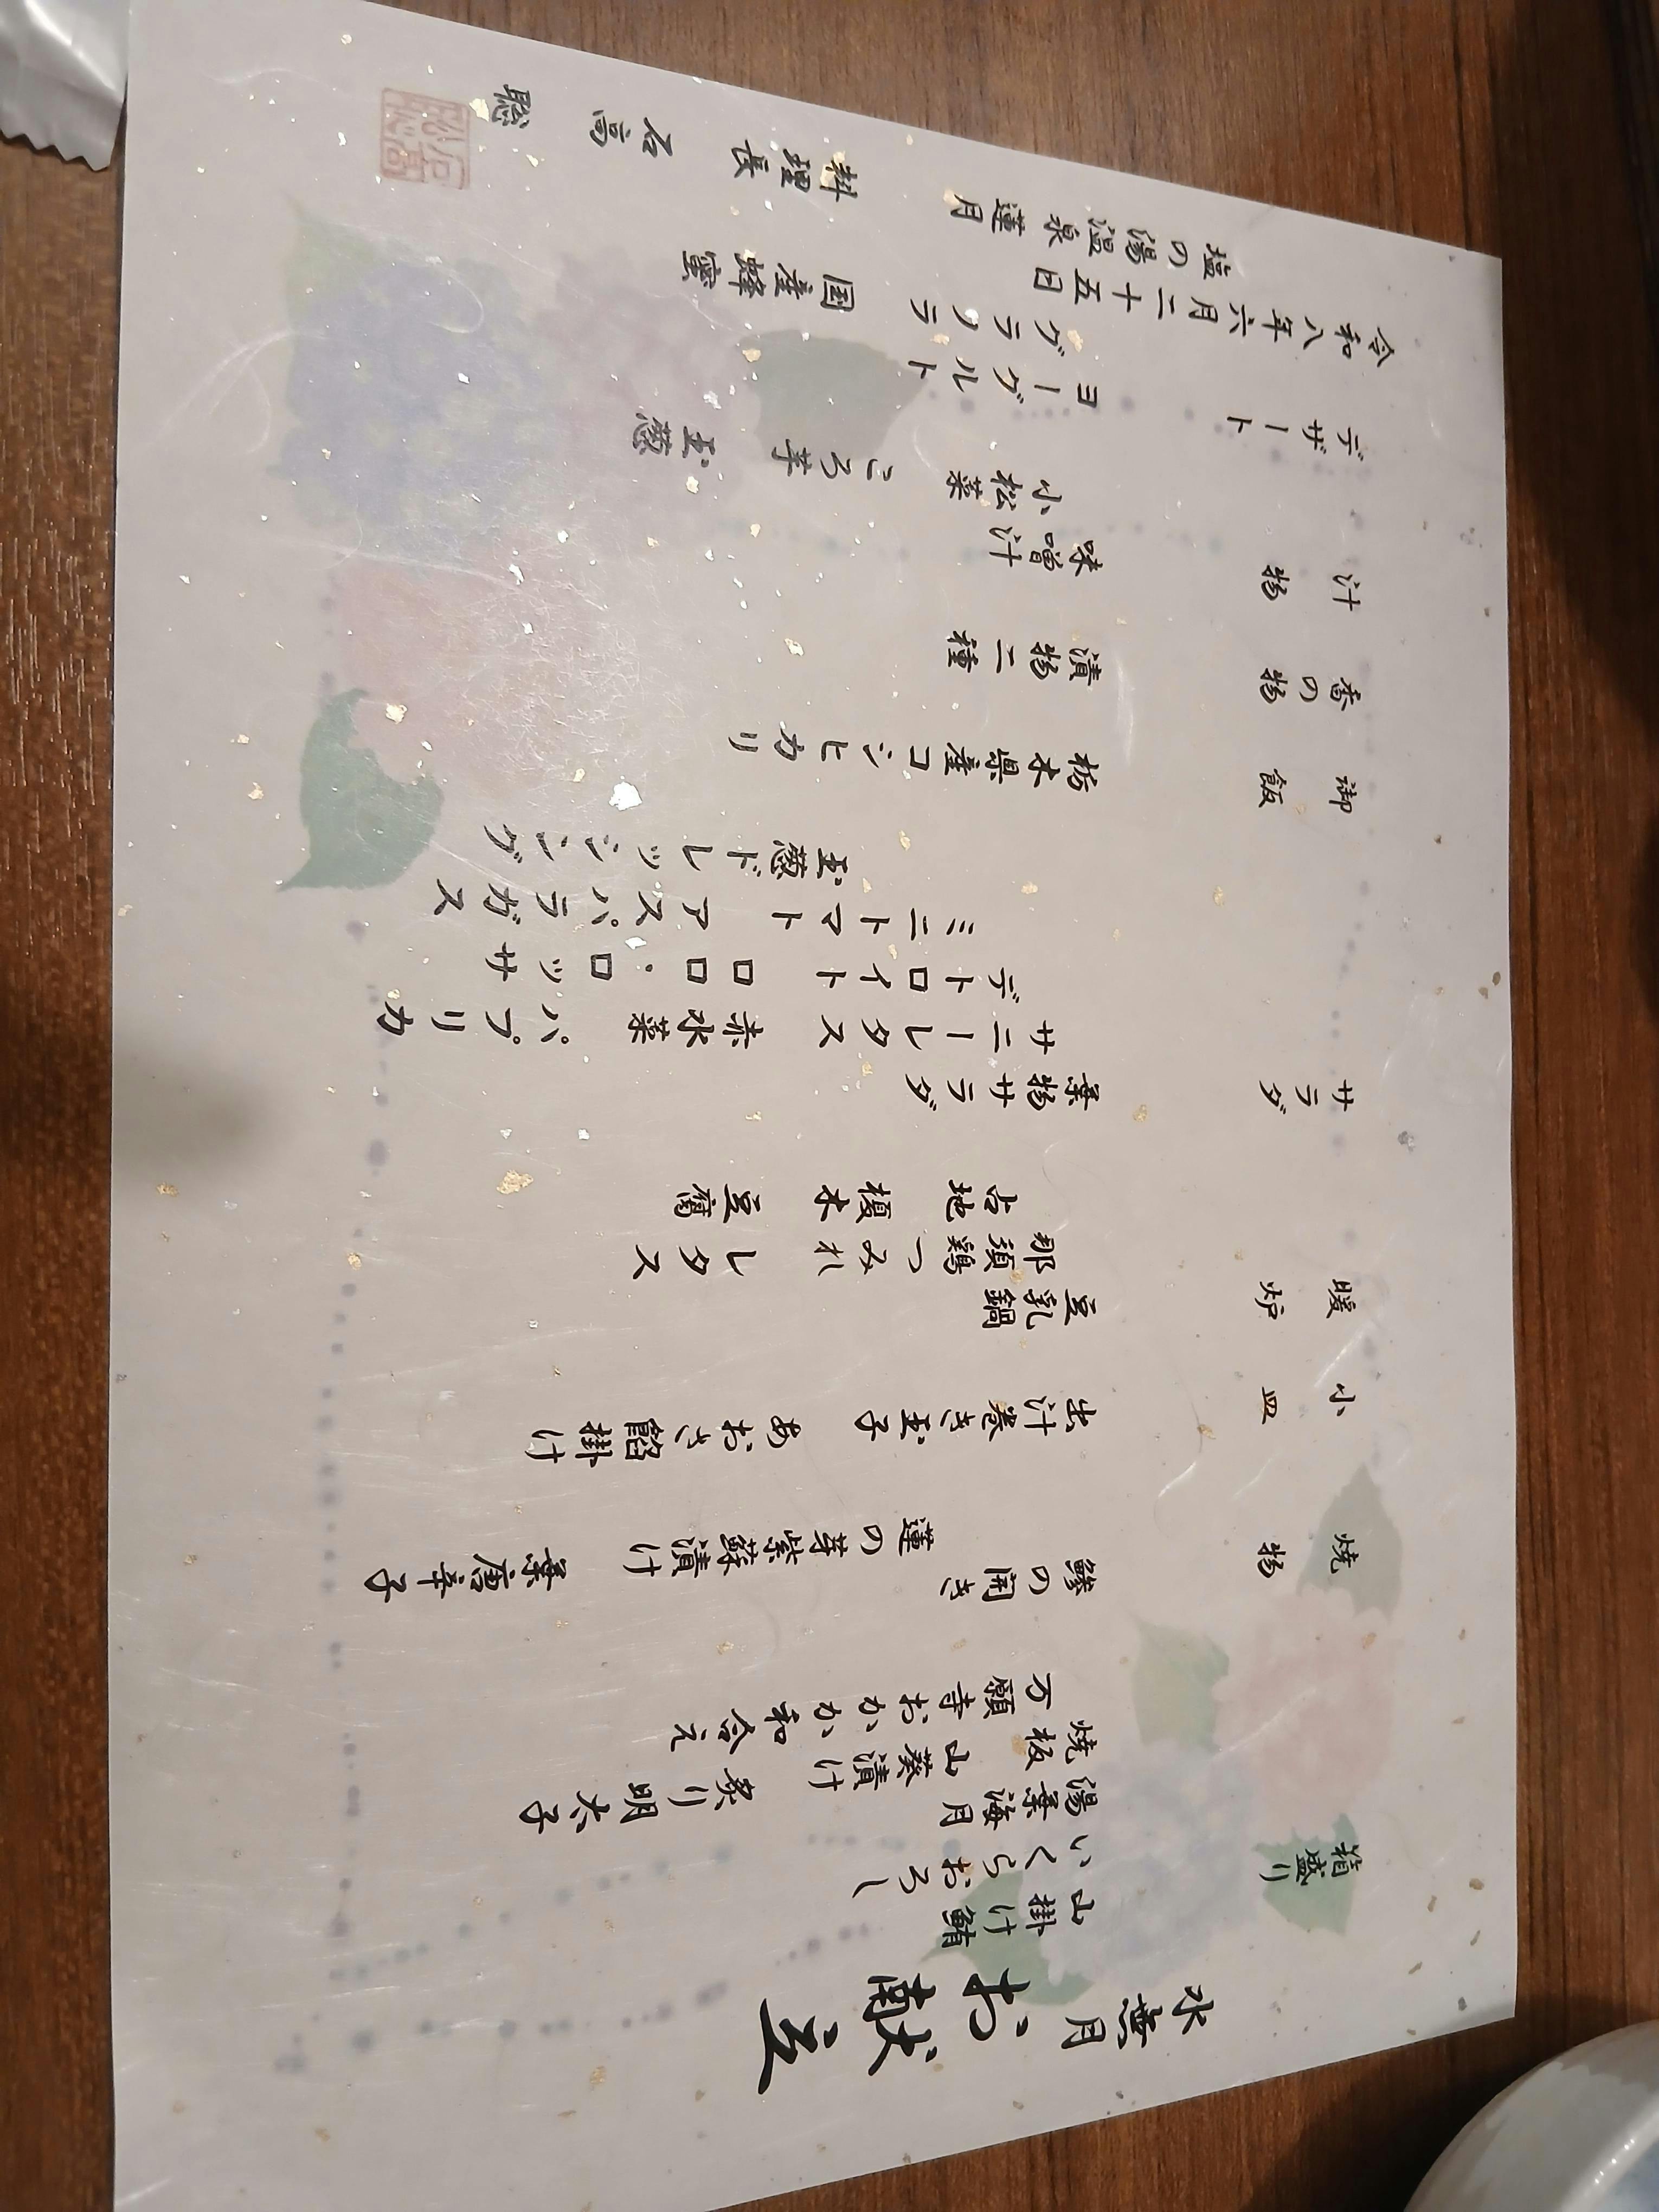 水無月
お献立
箱盛り
山掛け鮪
いくらおろし
湯葉海月 山葵漬け 炙り明太子
焼板
万願寺おかか和合え
焼物
鯵の開き
蓮の芽紫蘇漬け 葉唐辛子
小皿
出汁巻き玉子 あおさ餡掛け
暖炉
豆乳鍋
那須鶏つみれ レタス
占地 榎木 豆腐
サラダ
葉物サラダ
サニーレタス 赤水菜 パプリカ
デトロイト ロロ・ロッサ
ミニトマト アスパラガス
玉葱ドレッシング
御飯
栃木県産コシヒカリ
香の物
漬物二種
汁物
味噌汁
小松菜 ころ芋 玉葱
デザート
ヨーグルト
グラノラ 国産蜂蜜
令和八年六月二十五日
塩の湯温泉 蓮月
料理長 石高 聡